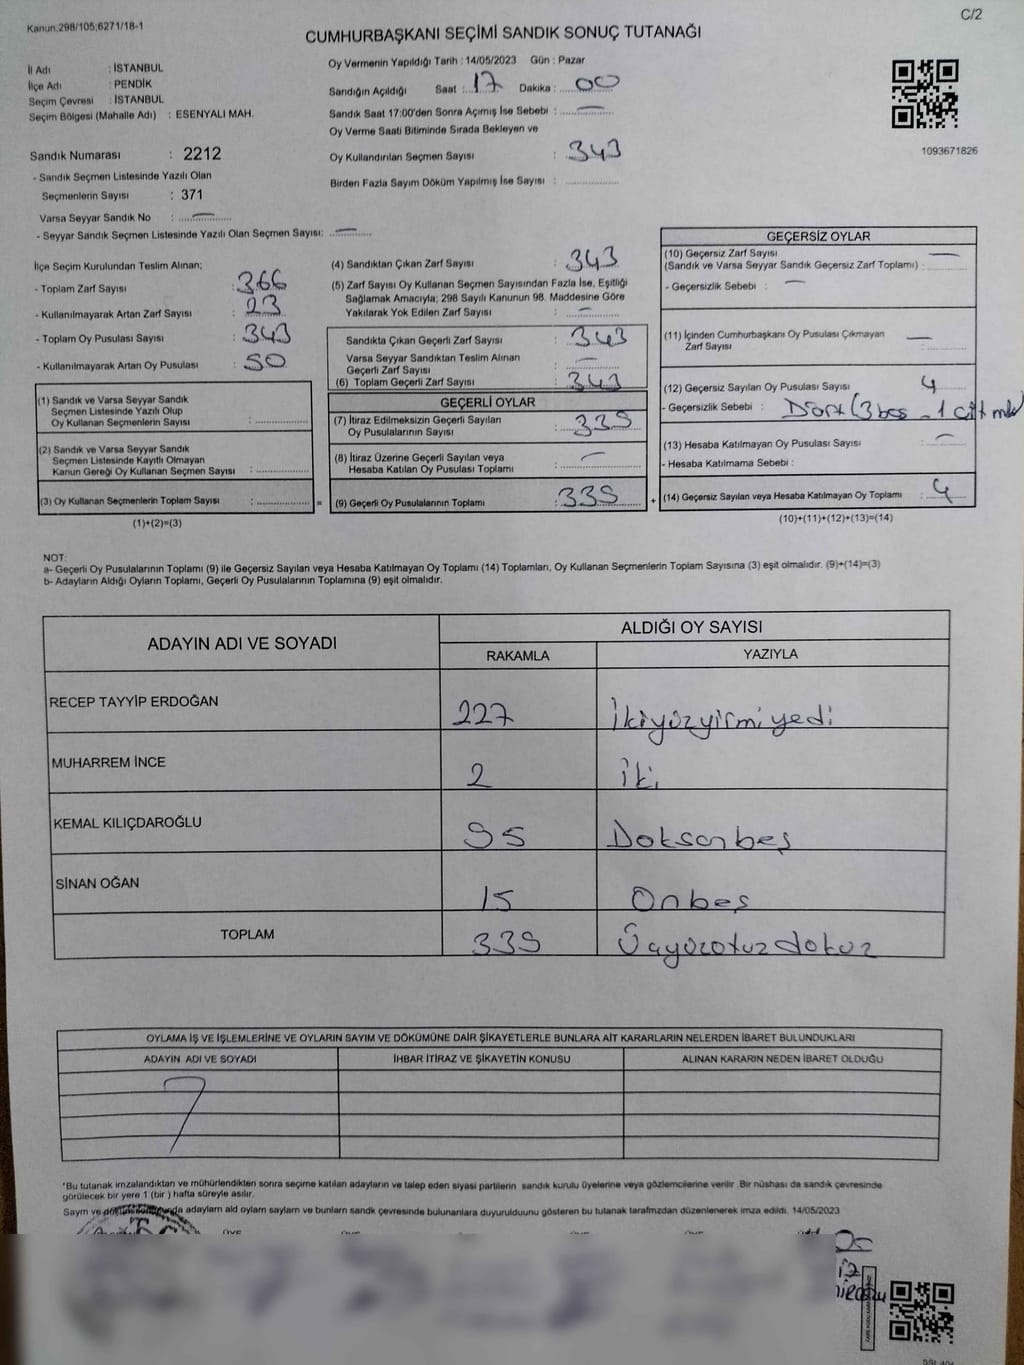 Kanun.298/105;6271/18-1
C/2
CUMHURBAŞKANI SEÇİMİ SANDIK SONUÇ TUTANAĞI
İl Adı : İSTANBUL
İlçe Adı : PENDİK
Seçim Çevresi : İSTANBUL
Seçim Bölgesi (Mahalle Adı) : ESENYALI MAH.
Sandık Numarası : 2212
- Sandık Seçmen Listesinde Yazılı Olan
Seçmenlerin Sayısı : 371
Varsa Seyyar Sandık No : —
- Seyyar Sandık Seçmen Listesinde Yazılı Olan Seçmen Sayısı: —
Oy Vermenin Yapıldığı Tarih : 14/05/2023 Gün : Pazar
Sandığın Açıldığı Saat : 17 Dakika : 00
Sandık Saat 17:00'den Sonra Açımış İse Sebebi : —
Oy Verme Saati Bitiminde Sırada Bekleyen ve
Oy Kullandırılan Seçmen Sayısı : 343
Birden Fazla Sayım Döküm Yapılmış İse Sayısı : ..............
1093671826
İlçe Seçim Kurulundan Teslim Alınan;
- Toplam Zarf Sayısı : 366
- Kullanılmayarak Artan Zarf Sayısı : 23
- Toplam Oy Pusulası Sayısı : 343
- Kullanılmayarak Artan Oy Pusulası : 50
(1) Sandık ve Varsa Seyyar Sandık
Seçmen Listesinde Yazılı Olup
Oy Kullanan Seçmenlerin Sayısı : ..............
(2) Sandık ve Varsa Seyyar Sandık
Seçmen Listesinde Kayıtlı Olmayan
Kanun Gereği Oy Kullanan Seçmen Sayısı : ..............
(3) Oy Kullanan Seçmenlerin Toplam Sayısı : .............. =
(1)+(2)=(3)
(4) Sandıktan Çıkan Zarf Sayısı : 343
(5) Zarf Sayısı Oy Kullanan Seçmen Sayısından Fazla İse, Eşitliği
Sağlamak Amacıyla; 298 Sayılı Kanunun 98. Maddesine Göre
Yakılarak Yok Edilen Zarf Sayısı : —
Sandıkta Çıkan Geçerli Zarf Sayısı : 343
Varsa Seyyar Sandıktan Teslim Alınan
Geçerli Zarf Sayısı : —
(6) Toplam Geçerli Zarf Sayısı : 343
GEÇERLİ OYLAR
(7) İtiraz Edilmeksizin Geçerli Sayılan
Oy Pusulalarının Sayısı : 339
(8) İtiraz Üzerine Geçerli Sayılan veya
Hesaba Katılan Oy Pusulası Toplamı : —
(9) Geçerli Oy Pusulalarının Toplamı : 339 +
GEÇERSİZ OYLAR
(10) Geçersiz Zarf Sayısı —
(Sandık ve Varsa Seyyar Sandık Geçersiz Zarf Toplamı) : ..............
- Geçersizlik Sebebi : —
(11) İçinden Cumhurbaşkanı Oy Pusulası Çıkmayan
Zarf Sayısı : —
(12) Geçersiz Sayılan Oy Pusulası Sayısı : 4
- Geçersizlik Sebebi : Dört (3 boş - 1 çift
(13) Hesaba Katılmayan Oy Pusulası Sayısı : —
- Hesaba Katılmama Sebebi :
(14) Geçersiz Sayılan veya Hesaba Katılmayan Oy Toplamı : 4
(10)+(11)+(12)+(13)=(14)
NOT:
a- Geçerli Oy Pusulalarının Toplamı (9) ile Geçersiz Sayılan veya Hesaba Katılmayan Oy Toplamı (14) Toplamları, Oy Kullanan Seçmenlerin Toplam Sayısına (3) eşit olmalıdır. (9)+(14)=(3)
b- Adayların Aldığı Oyların Toplamı, Geçerli Oy Pusulalarının Toplamına (9) eşit olmalıdır.
ADAYIN ADI VE SOYADI ALDIĞI OY SAYISI
RAKAMLA YAZIYLA
RECEP TAYYİP ERDOĞAN 227 İkiyüzyirmiyedi
MUHARREM İNCE 2 İki
KEMAL KILIÇDAROĞLU 95 Doksanbeş
SİNAN OĞAN 15 Onbeş
TOPLAM 339 Üçyüzotuzdokuz
OYLAMA İŞ VE İŞLEMLERİNE VE OYLARIN SAYIM VE DÖKÜMÜNE DAİR ŞİKAYETLERLE BUNLARA AİT KARARLARIN NELERDEN İBARET BULUNDUKLARI
ADAYIN ADI VE SOYADI İHBAR İTİRAZ VE ŞİKAYETİN KONUSU ALINAN KARARIN NEDEN İBARET OLDUĞU
*Bu tutanak imzalandıktan ve mühürlendikten sonra seçime katılan adayların ve talep eden siyasi partilerin sandık kurulu üyelerine veya gözlemcilerine verilir. Bir nüshası da sandık çevresinde
görülecek bir yere 1 (bir ) hafta süreyle asılır.
Sayım ve adayların ald oyların sayların ve bunların sandk çevresinde bulunanlara duyurulduunu gösteren bu tutanak tarafmzdan düzenlenerek imza edildi. 14/05/2023